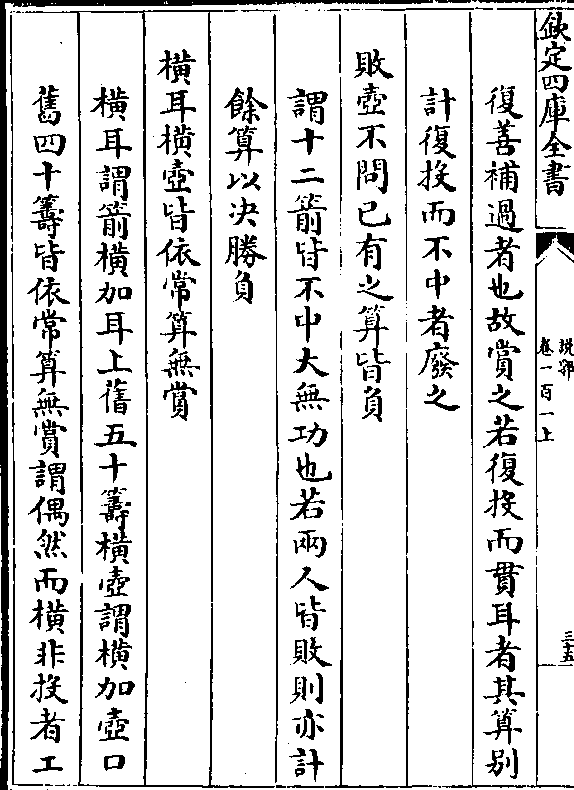 欽定四庫全書
說郛
卷一百一上
三十五
復善補過者也故賞之若復投而貫耳者其算别
計復投而不中者廢之
敗壺不問已有之算皆負
謂十二箭皆不中大無功也若兩人皆敗則亦計
餘算以决勝負
橫耳橫壺皆依常算無賞
橫耳謂箭橫加耳上舊五十籌橫壺謂橫加壺口
舊四十籌皆依常算無賞謂偶然而橫非投者工